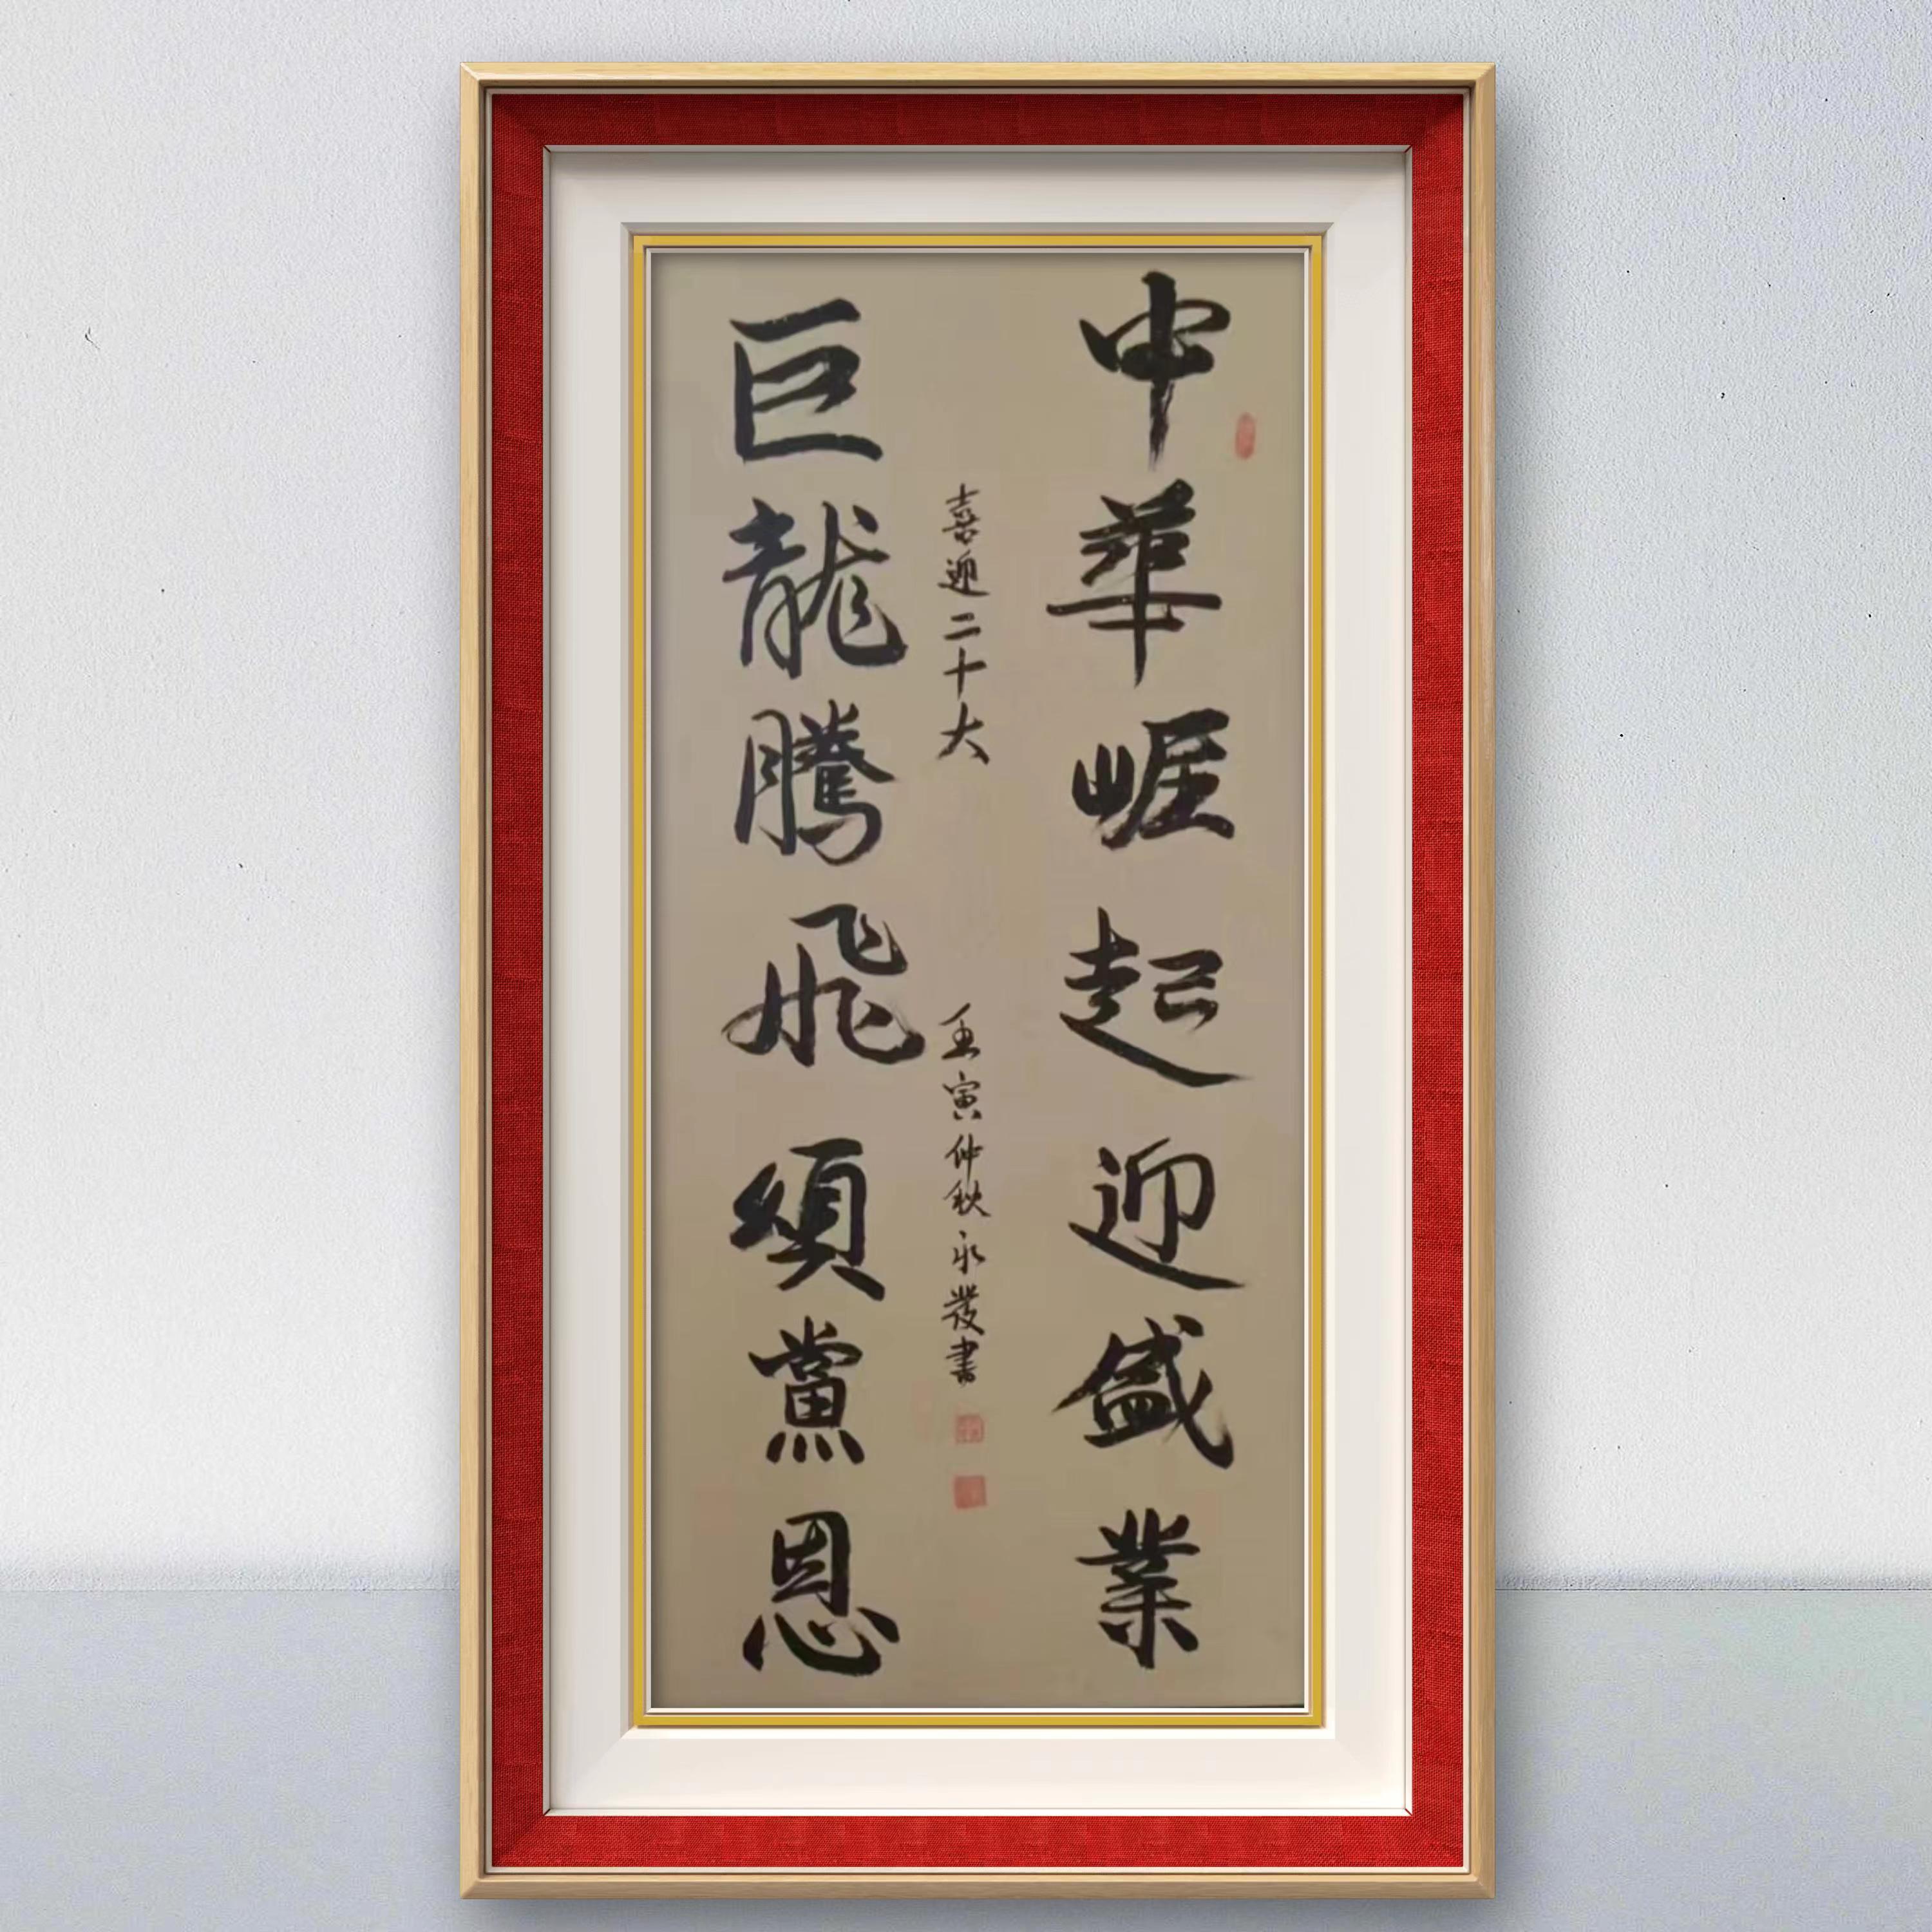 中華崛起迎盛業
喜迎二十大
壬寅仲秋永發書
巨龍騰飛頌黨恩